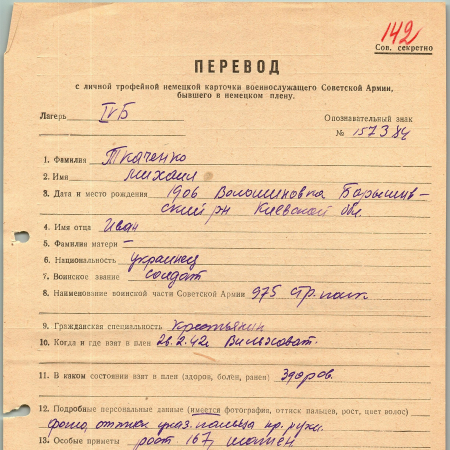 142
Сов. секретно
ПЕРЕВОД
с личной трофейной немецкой карточки военнослужащего Советской Армии,
бывшего в немецком плену.
Лагерь IVБ
Опознавательный знак
№ 157384
1. Фамилия Ткаченко
2. Имя Михаил
3. Дата и место рождения 1906 Волошиновка Барышив-
ский рн Киевской обл.
4. Имя отца Иван
5. Фамилия матери —
6. Национальность украинец
7. Воинское звание солдат
8. Наименование воинской части Советской Армии 975 стр. полк
9. Гражданская специальность крестьянин
10. Когда и где взят в плен 28.2.42г
11. В каком состоянии взят в плен (здоров, болен, ранен) здоров.
12. Подробные персональные данные (имеется фотография, оттиск пальцев, рост, цвет волос)
фото, оттиск указ. пальца пр. руки.
13. Особые приметы рост 167,